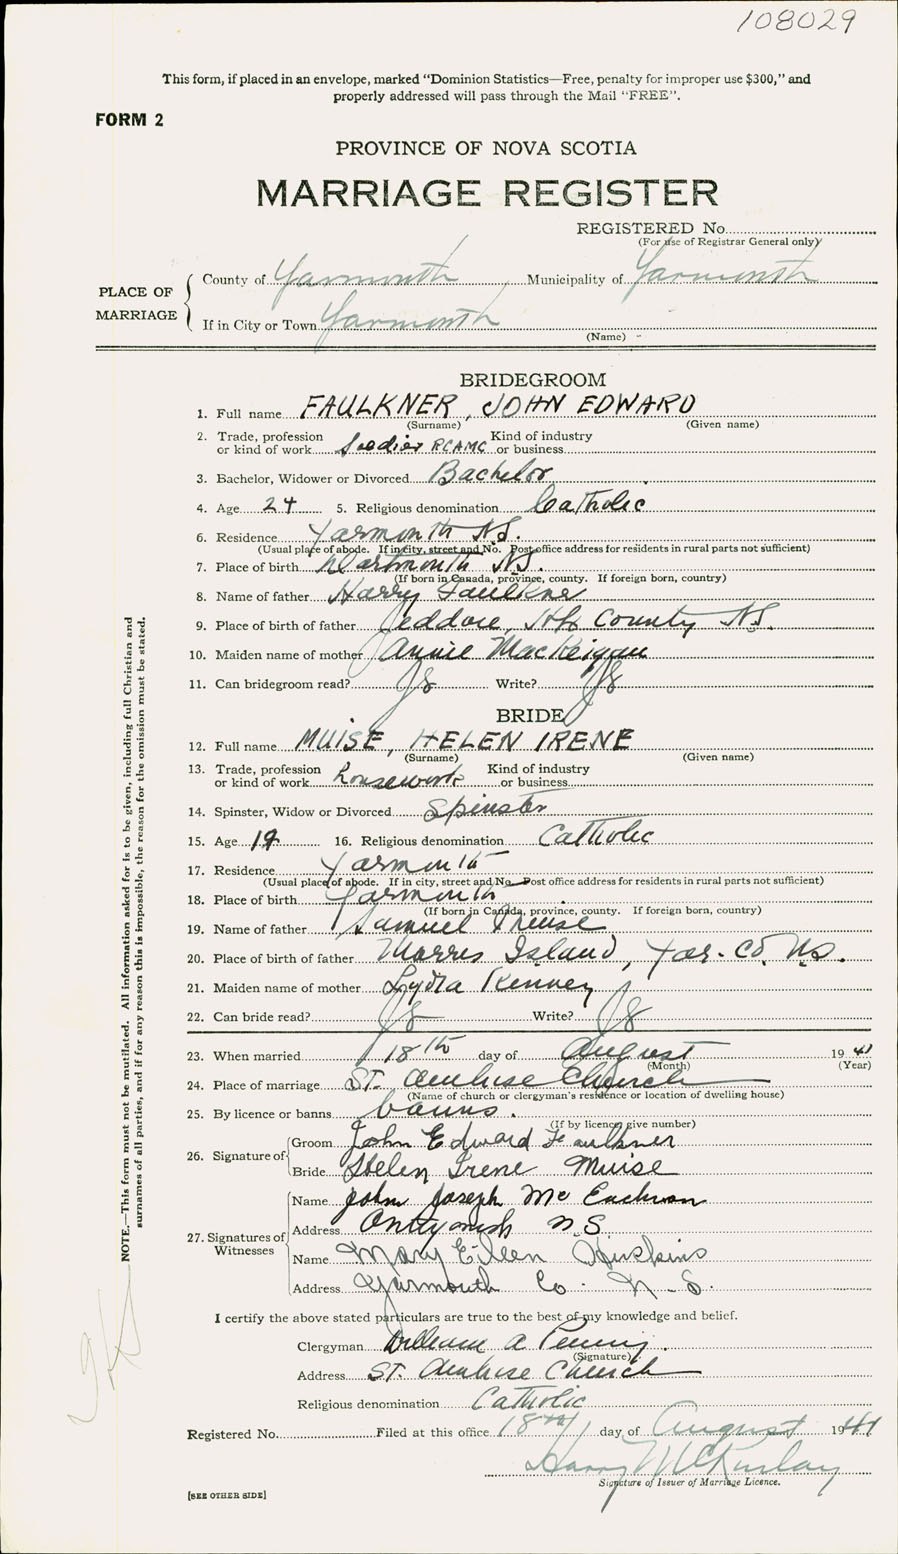 108029
This form, if placed in an envelope, marked "Dominion Statistics—Free, penalty for improper use $300," and
properly addressed will pass through the Mail "FREE".
FORM 2
PROVINCE OF NOVA SCOTIA
MARRIAGE REGISTER
REGISTERED No.
(For use of Registrar General only)
PLACE OF MARRIAGE
County of Yarmouth Municipality of Yarmouth
If in City or Town Yarmouth
(Name)
BRIDEGROOM
1. Full name FAULKNER, JOHN EDWARD
(Surname) (Given name)
2. Trade, profession or kind of work Soldier RCAMC Kind of industry or business
3. Bachelor, Widower or Divorced Bachelor
4. Age 24 5. Religious denomination Catholic
6. Residence Yarmouth N.S.
(Usual place of abode. If in city, street and No. Post office address for residents in rural parts not sufficient)
7. Place of birth Dartmouth N.S.
(If born in Canada, province, county. If foreign born, country)
8. Name of father Harry Faulkner
9. Place of birth of father Jeddore, Hfx County N.S.
10. Maiden name of mother Annie MacKeigan
11. Can bridegroom read? Write?
BRIDE
12. Full name MUISE, HELEN IRENE
(Surname) (Given name)
13. Trade, profession or kind of work housework Kind of industry or business
14. Spinster, Widow or Divorced Spinster
15. Age 19 16. Religious denomination Catholic
17. Residence Yarmouth
(Usual place of abode. If in city, street and No. Post office address for residents in rural parts not sufficient)
18. Place of birth Yarmouth
(If born in Canada, province, county. If foreign born, country)
19. Name of father Samuel Muise
20. Place of birth of father Morris Island, Yar. Co. N.S.
21. Maiden name of mother Lydia Kenney
22. Can bride read? Write?
23. When married 18th day of August 1941
(Month) (Year)
24. Place of marriage St. Ambrose Church
(Name of church or clergyman's residence or location of dwelling house)
25. By licence or banns banns.
(If by licence give number)
26. Signature of
Groom John Edward Faulkner
Bride Helen Irene Muise
27. Signatures of Witnesses
Name John Joseph McEachern
Address Antigonish N.S.
Name Mary Eileen Huskins
Address Yarmouth Co. N.S.
I certify the above stated particulars are true to the best of my knowledge and belief.
Clergyman William A Penny
(Signature)
Address St. Ambrose Church
Religious denomination Catholic
Registered No. Filed at this office 18th day of August 1941
Harry McKinlay
Signature of Issuer of Marriage Licence.
[SEE OTHER SIDE]
NOTE.—This form must not be mutilated. All information asked for is to be given, including full Christian and
surnames of all parties, and if for any reason this is impossible, the reason for the omission must be stated.